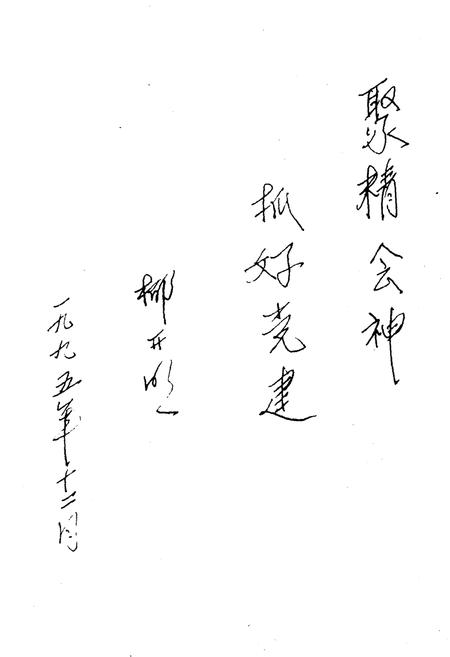 聚精会神
抓好党建
一九九五年十二月